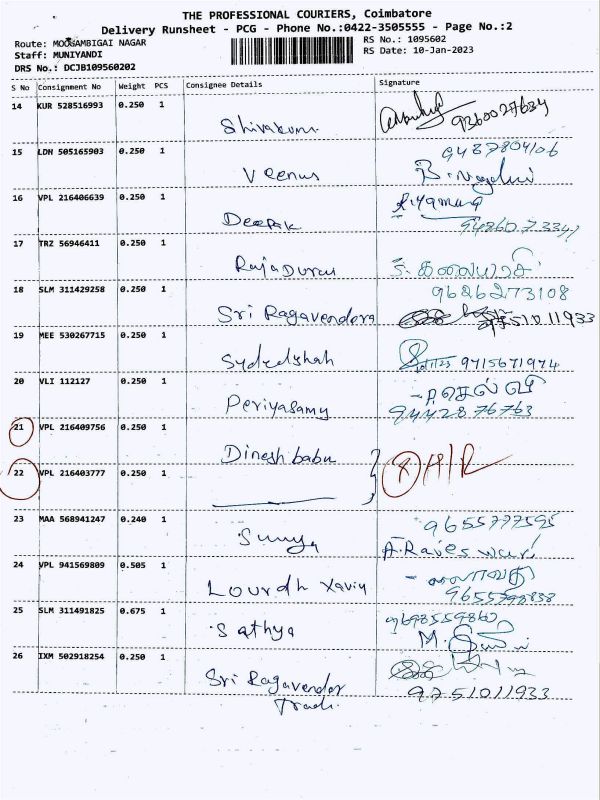 THE PROFESSIONAL COURIERS, Coimbatore
Delivery Runsheet - PCG - Phone No.:0422-3505555 - Page No.:2
Route: MOOGAMBIGAI NAGAR
RS No.: 1095602
Staff: MUNIYANDI
RS Date: 10-Jan-2023
DRS No.: DCJB109560202
S No Consignment No Weight PCS Consignee Details Signature
14 KUR 528516993 0.250 1
Shivakumar 9360027634
15 LDN 505165903 0.250 1 9487804106
Veenus
16 VPL 216406639 0.250 1
Deepak
17 TRZ 56946411 0.250 1
Rajadurai
18 SLM 311429258 0.250 1 9626273108
Sri Ragavendera 9751011933
19 MEE 530267715 0.250 1
9715671974
20 VLI 112127 0.250 1
Periyasamy 9442876763
21 VPL 216409756 0.250 1
Dinesh babu
22 VPL 216403777 0.250 1
23 MAA 568941247 0.240 1 9655777595
24 VPL 941569809 0.505 1
Lourdh Xaviy 9655798838
25 SLM 311491825 0.675 1 9698559860
Sathya
26 IXM 502918254 0.250 1
Sri Ragavender 9751011933